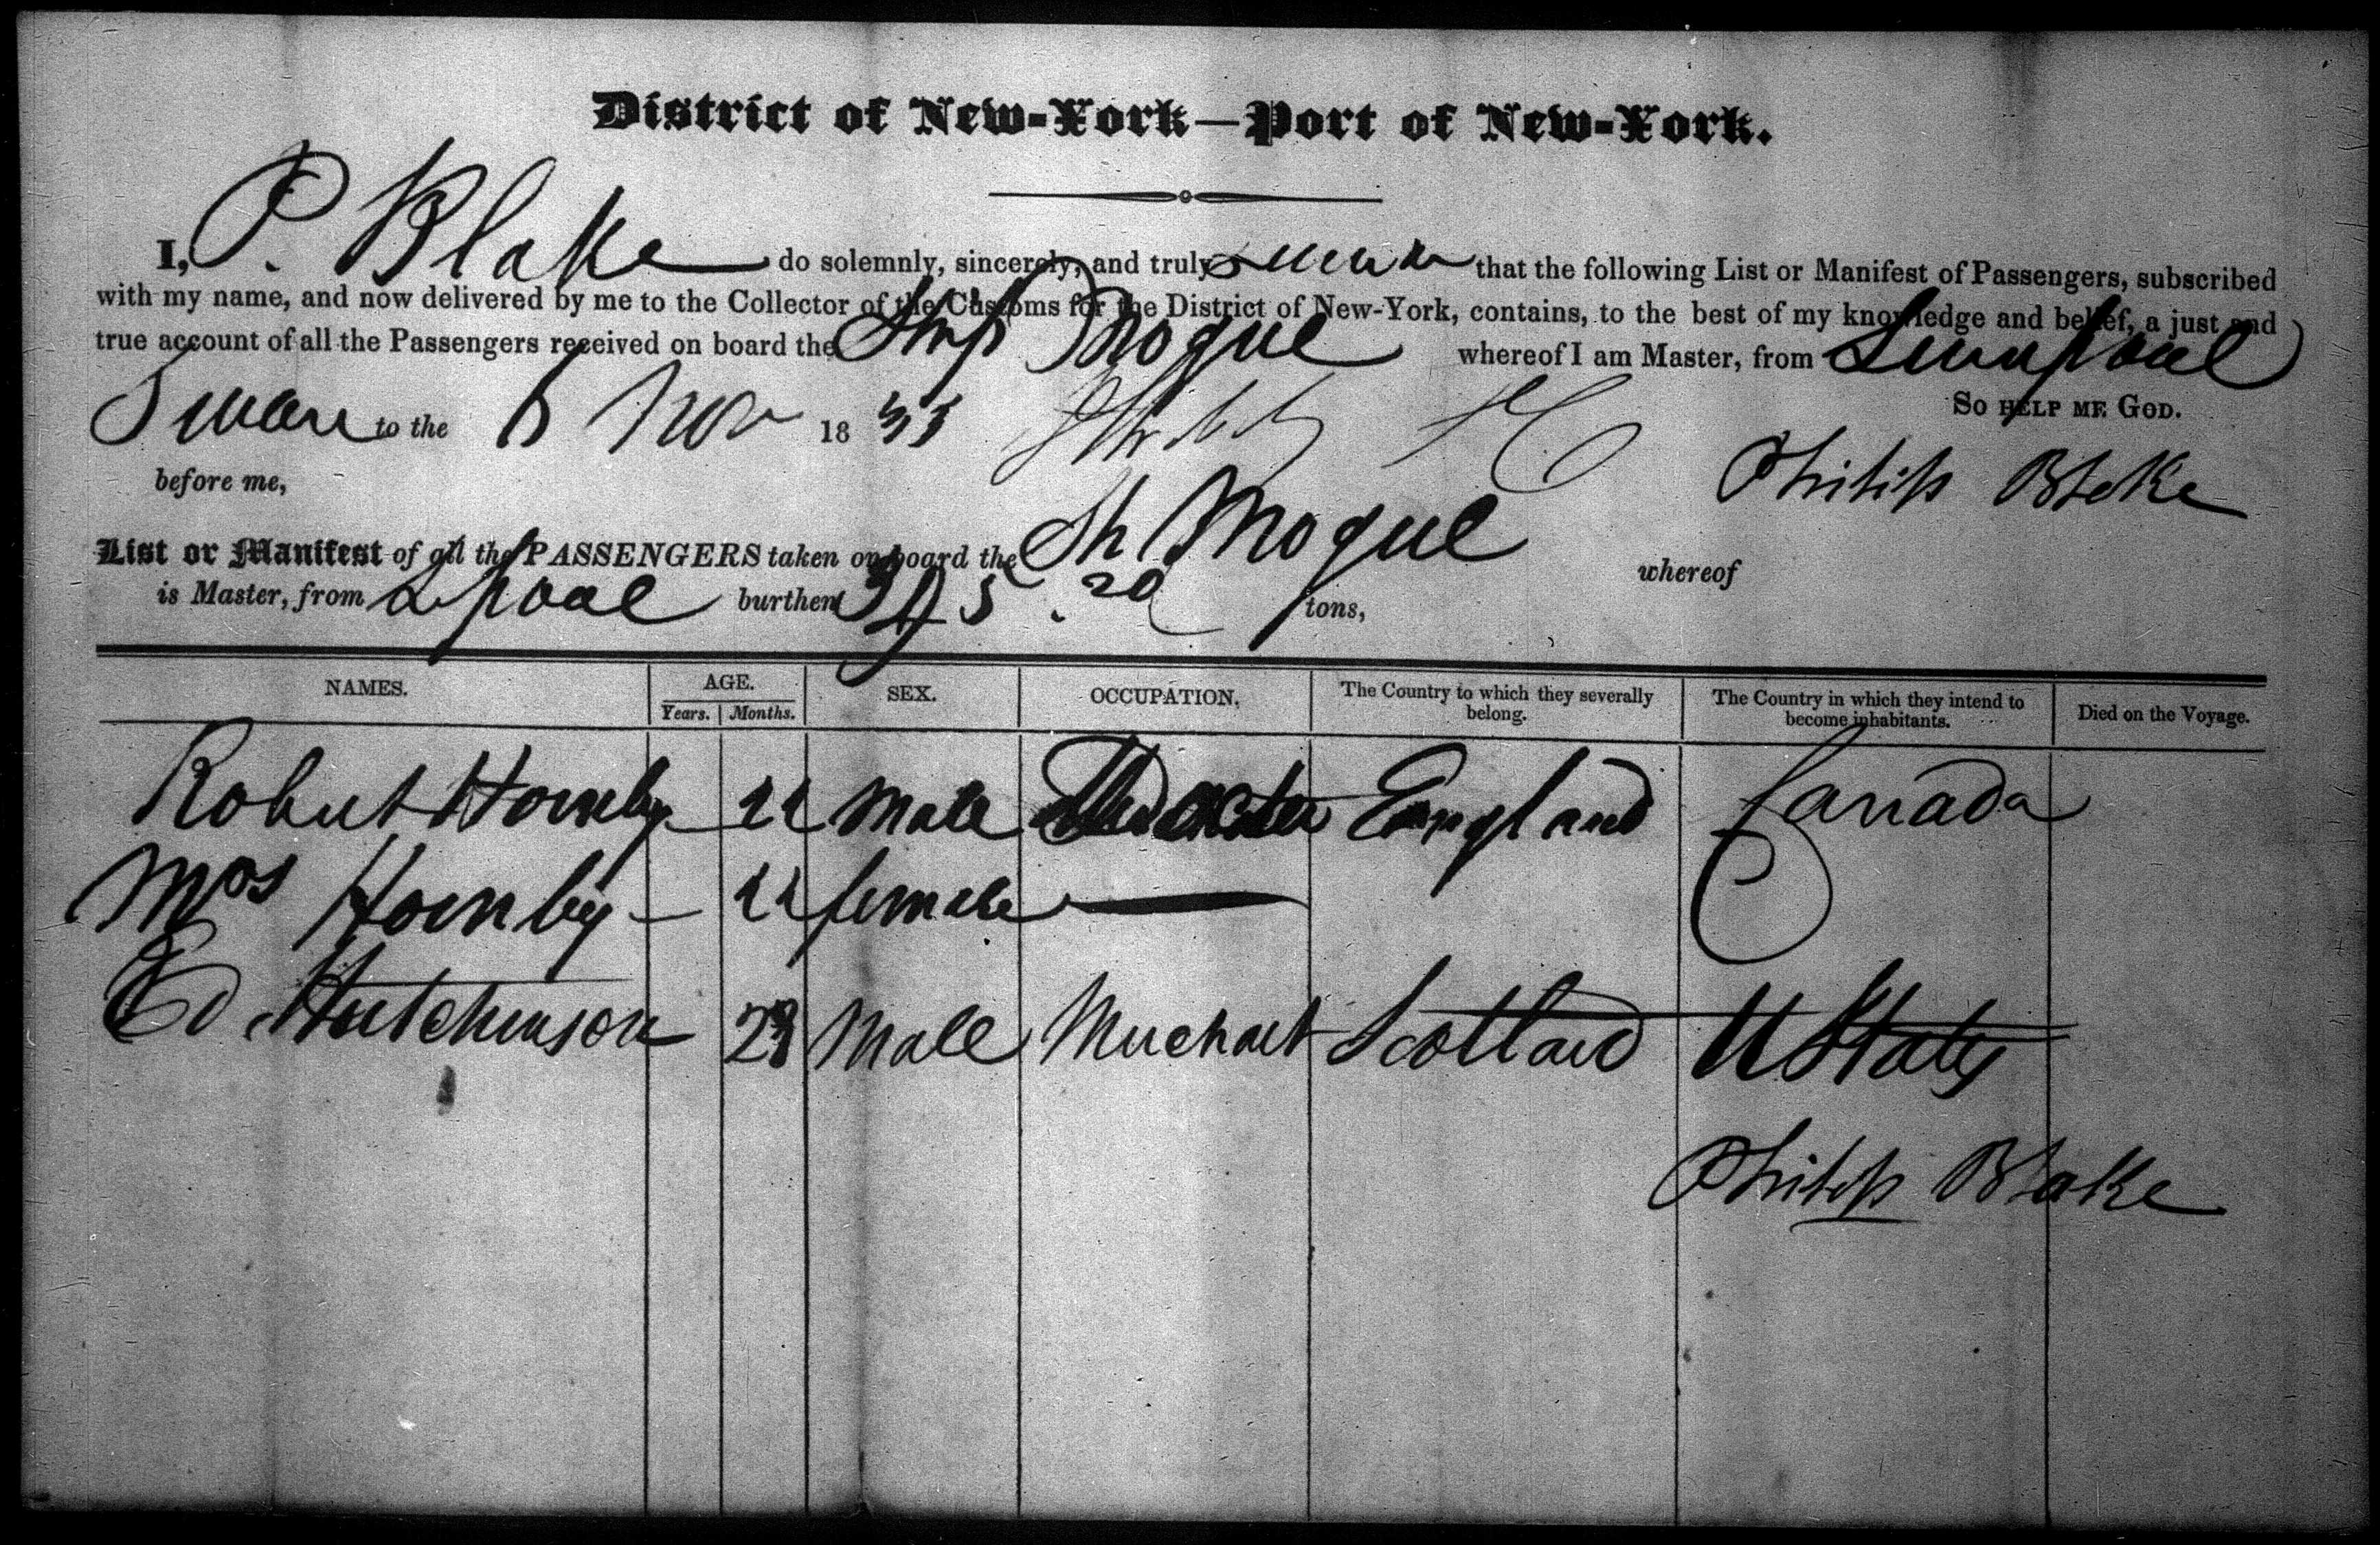 District of New-York—Port of New-York.
I, P. Blake do solemnly, sincerely, and truly swear that the following List or Manifest of Passengers, subscribed
with my name, and now delivered by me to the Collector of the Customs for the District of New-York, contains, to the best of my knowledge and belief, a just and
true account of all the Passengers received on board the Ship Mogul whereof I am Master, from Liverpool
Sworn to the 6 Nov 1833 So help me God.
before me, Philip Blake
List or Manifest of all the PASSENGERS taken on board the Sh Mogul whereof
is Master, from Lpool burthen 395.20 tons,
NAMES. AGE. SEX. OCCUPATION. The Country to which they severally belong. The Country in which they intend to become inhabitants. Died on the Voyage.
Years. Months.
Robert Hornby 22 Male England Canada
Mrs Hornby 22 female
Ed. Hutchinson 28 Male Merchant Scotland U States
Philip Blake